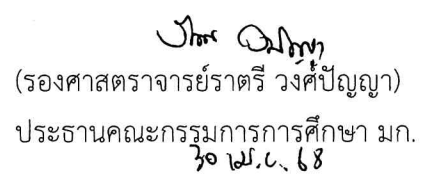 (รองศาสตราจารย์ราตรี วงศ์ปัญญา)
ประธานคณะกรรมการการศึกษา มก.
30 เม.ย. 68